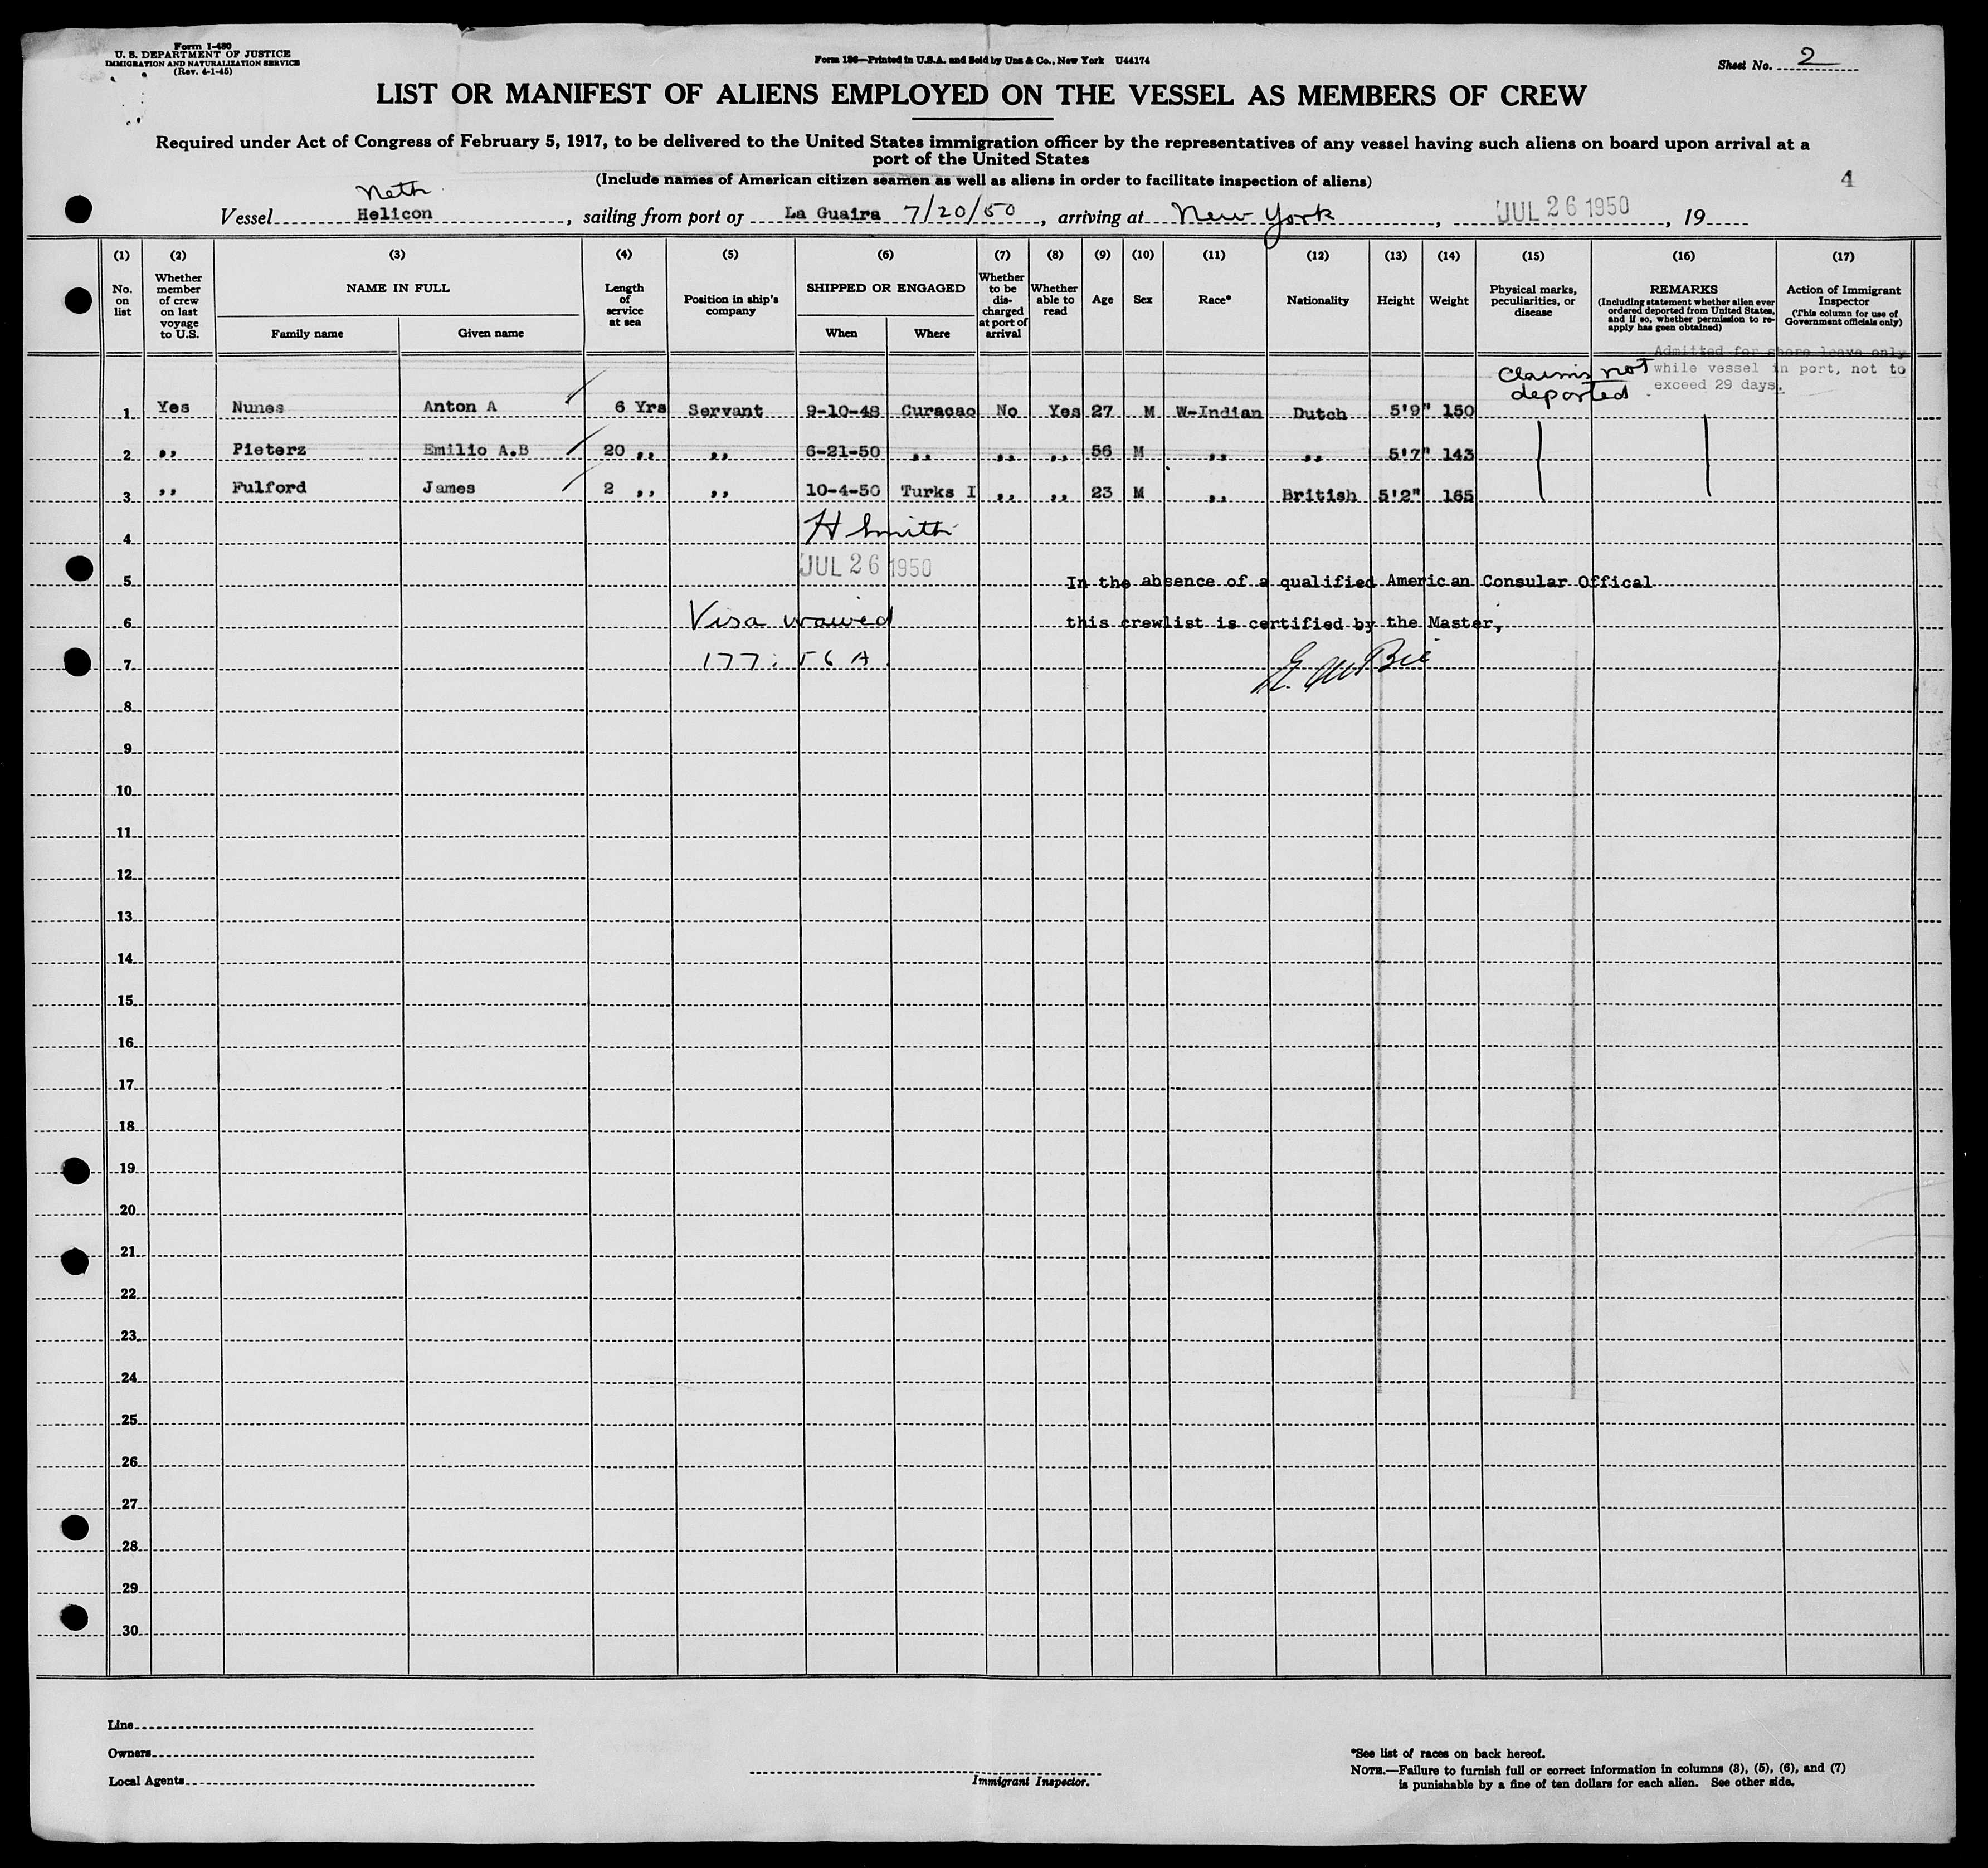 Form I-480
U. S. DEPARTMENT OF JUSTICE
IMMIGRATION AND NATURALIZATION SERVICE
(Rev. 4-1-45)
Form 186—Printed in U.S.A. and Sold by Unz & Co., New York U44174
Sheet No. 2
LIST OR MANIFEST OF ALIENS EMPLOYED ON THE VESSEL AS MEMBERS OF CREW
Required under Act of Congress of February 5, 1917, to be delivered to the United States immigration officer by the representatives of any vessel having such aliens on board upon arrival at a
port of the United States
(Include names of American citizen seamen as well as aliens in order to facilitate inspection of aliens)
4
Neth.
Vessel Helicon, sailing from port of La Guaira 7/20/50, arriving at New York, JUL 26 1950, 19
(1) No. on list
(2) Whether member of crew on last voyage to U.S.
(3) NAME IN FULL
Family name
Given name
(4) Length of service at sea
(5) Position in ship's company
(6) SHIPPED OR ENGAGED
When
Where
(7) Whether to be dis-charged at port of arrival
(8) Whether able to read
(9) Age
(10) Sex
(11) Race*
(12) Nationality
(13) Height
(14) Weight
(15) Physical marks, peculiarities, or disease
(16) REMARKS
(Including statement whether alien ever ordered deported from United States, and if so, whether permission to re-apply has geen obtained)
(17) Action of Immigrant Inspector
(This column for use of Government officials only)
Admitted for shore leave only
while vessel in port, not to
exceed 29 days.
Claims not
deported.
1 Yes Nunes Anton A 6 Yrs Servant 9-10-48 Curacao No Yes 27 M W-Indian Dutch 5'9" 150
2 ,, Pieterz Emilio A.B 20 ,, ,, 6-21-50 ,, ,, ,, 56 M ,, ,, 5'7" 143
3 ,, Fulford James 2 ,, ,, 10-4-50 Turks I ,, ,, 23 M ,, British 5'2" 165
4 H Smith
5 JUL 26 1950 In the absence of a qualified American Consular Offical
6 Visa waived this crewlist is certified by the Master,
7 177. 56 A.
8
9
10
11
12
13
14
15
16
17
18
19
20
21
22
23
24
25
26
27
28
29
30
Line
Owners
Local Agents
Immigrant Inspector.
*See list of races on back hereof.
NOTE.—Failure to furnish full or correct information in columns (3), (5), (6), and (7)
is punishable by a fine of ten dollars for each alien. See other side.